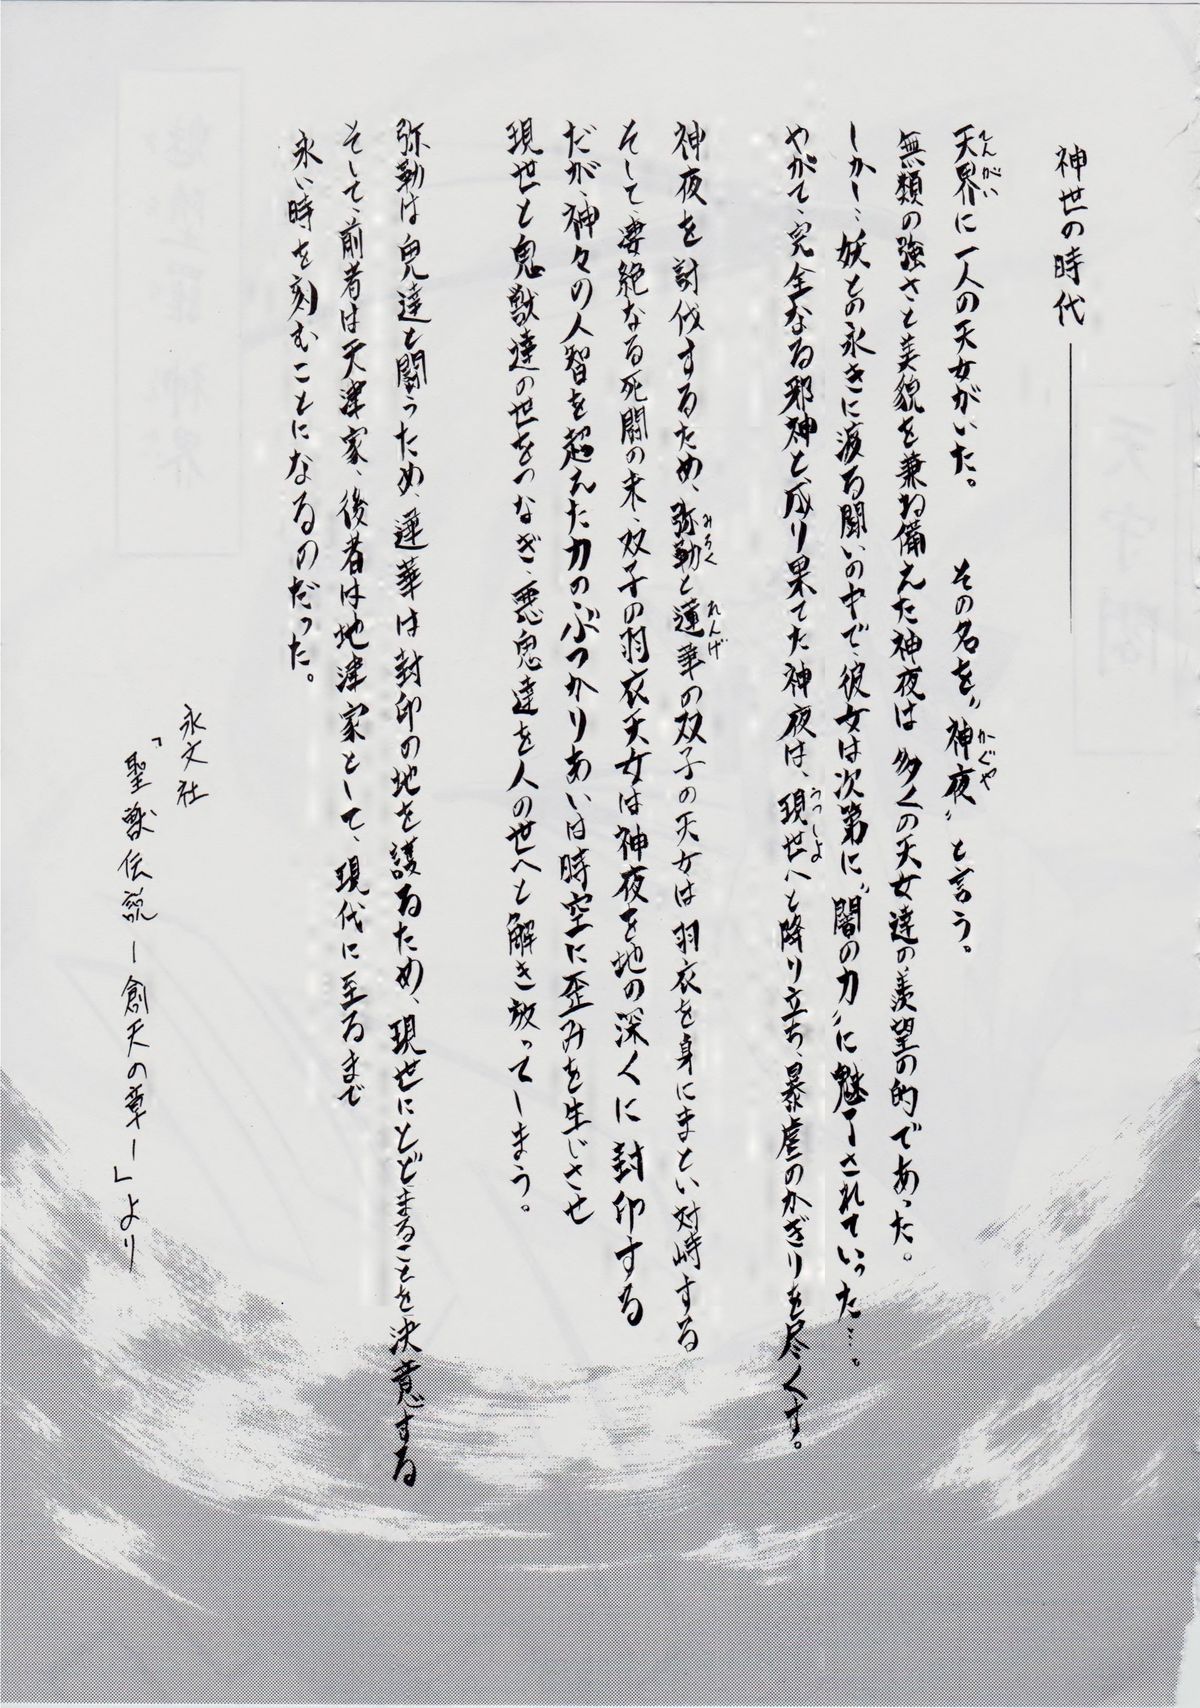 神世の時代――――
天界に一人の天女がいた。 その名を〝神夜〟と言う。
無類の強さと美貌を兼ね備えた神夜は多くの天女達の羨望の的であった。
しかし…妖との永きに渡る闘いの中で、彼女は次第に〝闇の力〟に魅了されていった…。
やがて、完全なる邪神と成り果てた神夜は、現世へと降り立ち、暴虐のかぎりを尽くす。
神夜を討伐するため、弥勒と蓮華の双子の天女は羽衣を身にまとい対峙する
そして、凄絶なる死闘の末、双子の羽衣天女は神夜を地の深くに封印する
だが、神々の人智を超えた力のぶつかりあいは時空に歪みを生じさせ
現世と鬼獣達の世をつなぎ、悪鬼達を人の世へと解き放ってしまう。
弥勒は鬼達と闘うため、蓮華は封印の地を護るため、現世にとどまることを決意する
そして、前者は天津家、後者は地津家として、現代に至るまで
永い時を刻むことになるのだった。
永文社
「聖獣伝説―創天の章―」より
てんがい
かぐや
うつしよ
みろく
れんげ